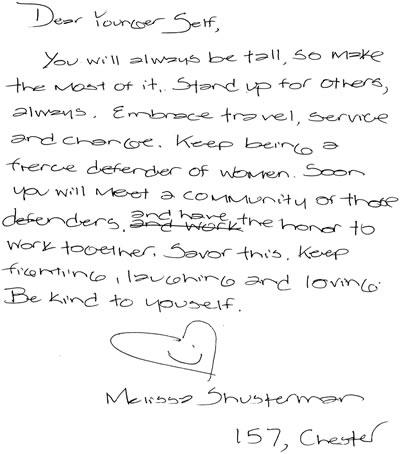 Dear Younger Self,
You will always be tall, so make
the most of it. Stand up for others,
always. Embrace travel, service
and change. Keep being a
fierce defender of women. Soon
you will meet a community of those
defenders, and have the honor to
and work
work together. Savor this. Keep
fighting, laughing and loving.
Be kind to youself.
Melissa Shusterman
157, Chester